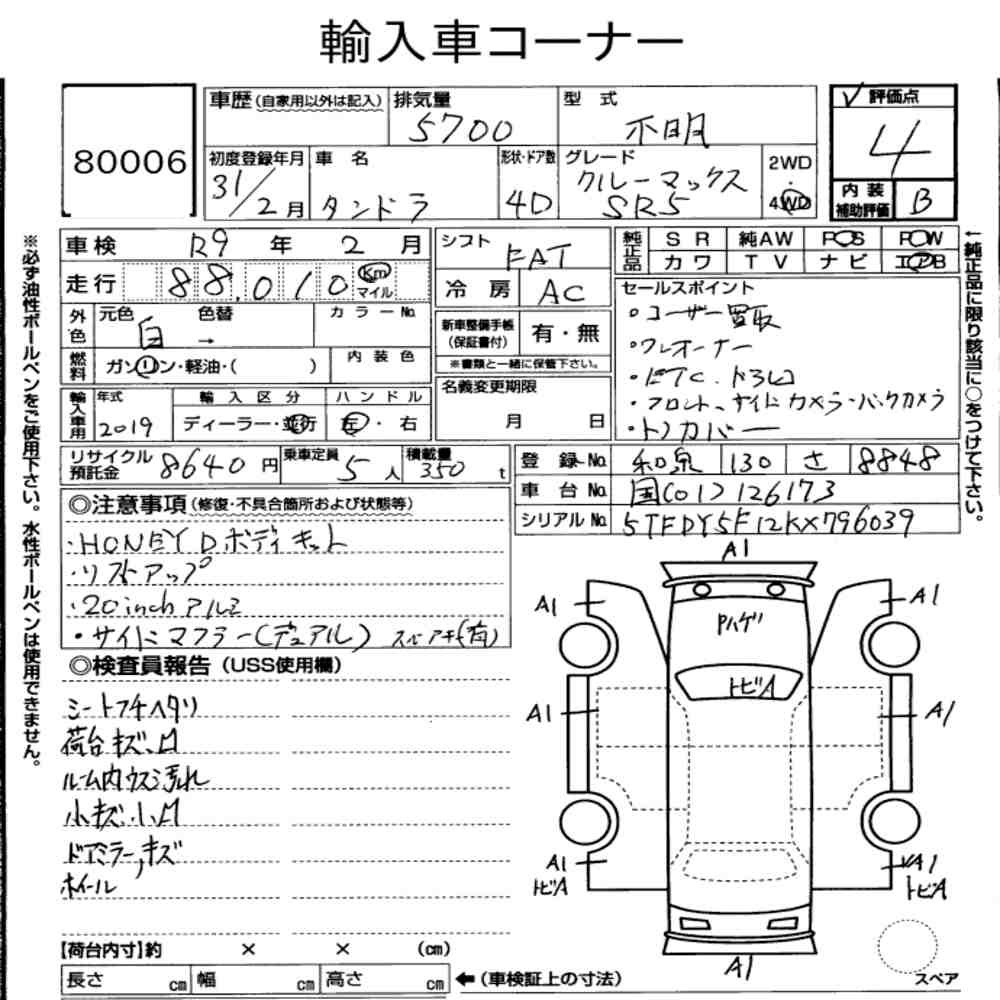 輸入車コーナー
80006
車歴(自家用以外は記入) 排気量 5700 型式 不明
評価点 4
初度登録年月 31/2月 車名 タンドラ 形状・ドア数 4D グレード クルーマックス SR5 2WD・4WD
内装補助評価 B
車検 R9年 2月
走行 88,010 Km マイル
外色 元色 白 色替 → カラーNo.
燃料 ガソリン・軽油・( ) 内装色
輸入車用 年式 2019 輸入区分 ディーラー・並行 ハンドル 左・右
リサイクル預託金 8640円 乗車定員 5人 積載量 350 t
シフト FAT
冷房 AC
新車整備手帳(保証書付) 有・無
※書類と一緒に保管下さい。
名義変更期限 月 日
純正品 SR 純AW PS PW
カワ TV ナビ エアB
セールスポイント
・ユーザー買取
・ワンオーナー
・ドラレコ
・フロント、サイドカメラ・バックカメラ
・トノカバー
登録No. 和泉 130 さ 8848
車台No. 国[01]126173
シリアルNo. 5TFDY5F12KX796039
◎注意事項(修復・不具合箇所および状態等)
・HONEY Dボディキット
・リフトアップ
・20inchアルミ
・サイドマフラー(デュアル) スペアキー(有)
◎検査員報告(USS使用欄)
シートフチヘタリ
荷台キズ、凹
ルーム内ウス汚れ
小キズ・小凹
ドアミラー,キズ
ホイール
【荷台内寸】約 × × (cm)
長さ cm 幅 cm 高さ cm ←(車検証上の寸法)
※必ず油性ボールペンをご使用下さい。水性ボールペンは使用できません。
←純正品に限り該当に○をつけて下さい。
A1
A1 A1
Pハゲ
トビA
A1 A1
A1 トビA
A1 トビA
A1
スペア